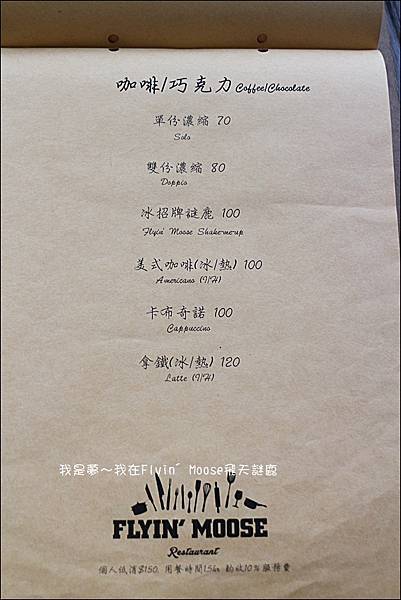 咖啡/巧克力Coffee/Chocolate
單份濃縮 70
Solo
雙份濃縮 80
Doppio
冰招牌謎鹿 100
Flyin' Moose Shake-me-up
美式咖啡(冰/熱) 100
Americano (I/H)
卡布奇諾 100
Cappuccino
拿鐵(冰/熱) 120
Latte (I/H)
我是夢～我在Flyin' Moose飛天謎鹿
FLYIN' MOOSE
Restaurant
個人低消$150, 用餐時間1.5hr 酌收10%服務費